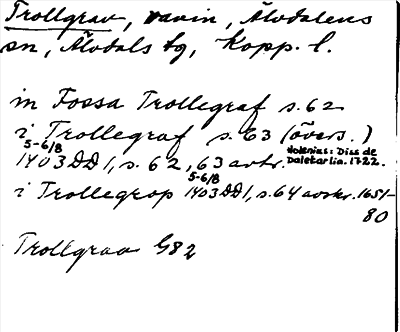 Trollgrav, ravin, Älvdalens
sn, Älvdals tg, Kopp. l.
in Fossa Trollegraf s. 62
i Trollegraf s. 63 (övers.)
5-6/8 Holenius: Diss de
1403 DD 1, s. 62, 63 avtr. Daletarlia. 1722.
5-6/8
i Trollegrop 1403 DD 1, s. 64 avskr. 1651-
80
Trollgrav G82